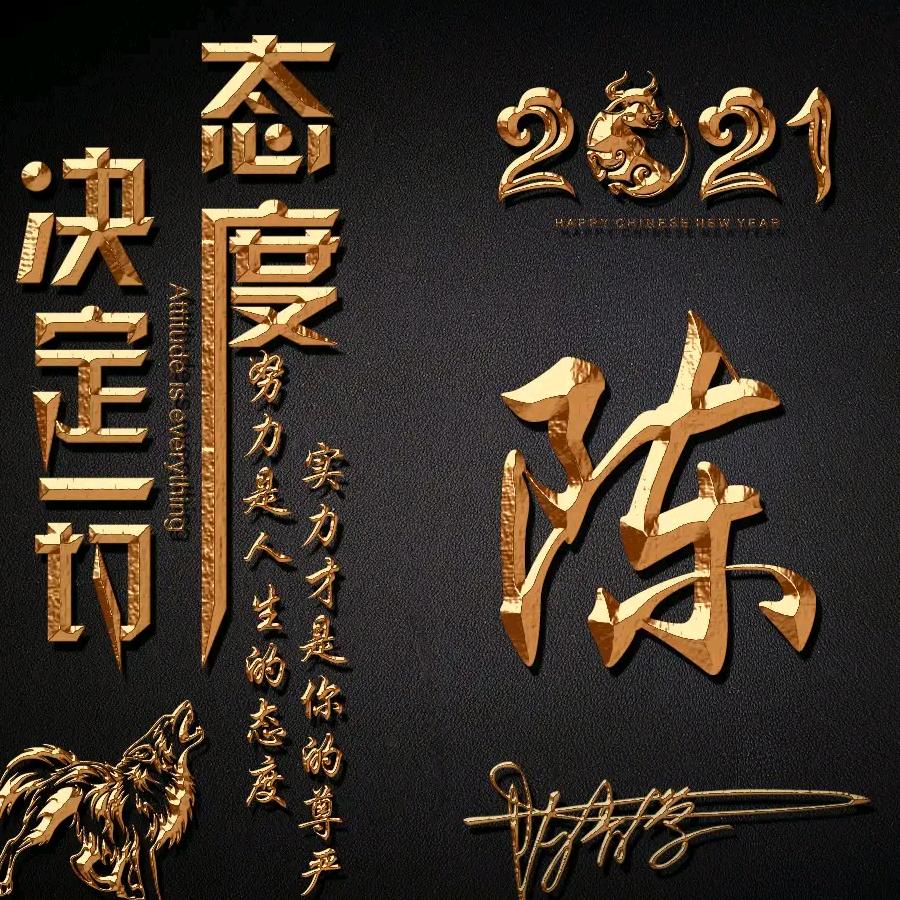 态度
决定一切
Attitude is everything
努力是人生的态度
实力才是你的尊严
2021
HAPPY CHINESE NEW YEAR
陈